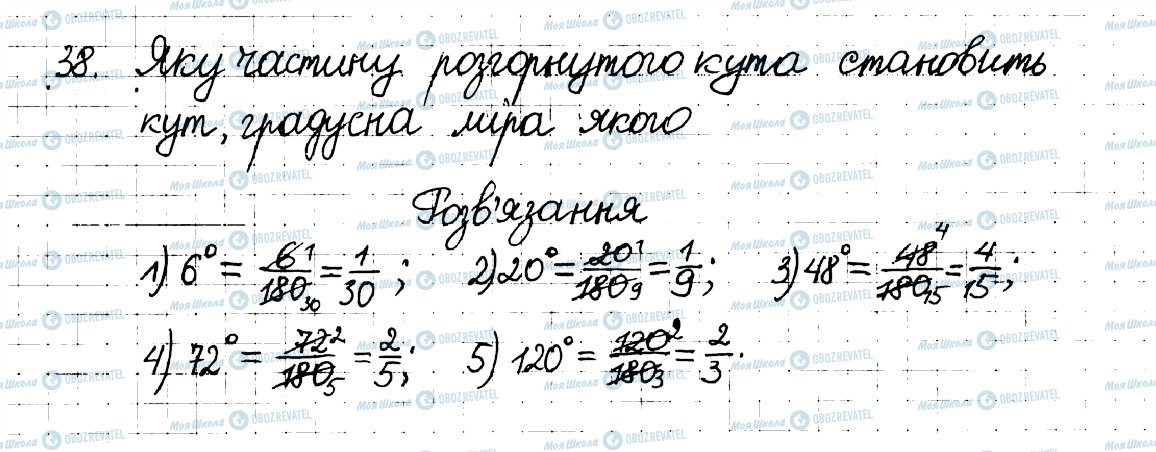 38. Яку частину розгорнутого кута становить
кут, градусна міра якого
Розв'язання
1) 6° = 6/180 = 1/30; 2) 20° = 20/180 = 1/9; 3) 48° = 48/180 = 4/15;
4) 72° = 72/180 = 2/5; 5) 120° = 120/180 = 2/3.